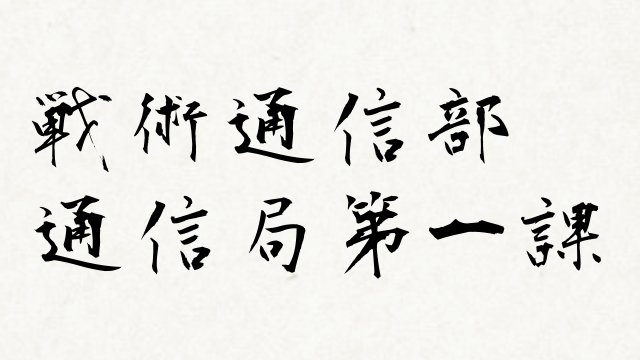 戦術通信部
通信局第一課